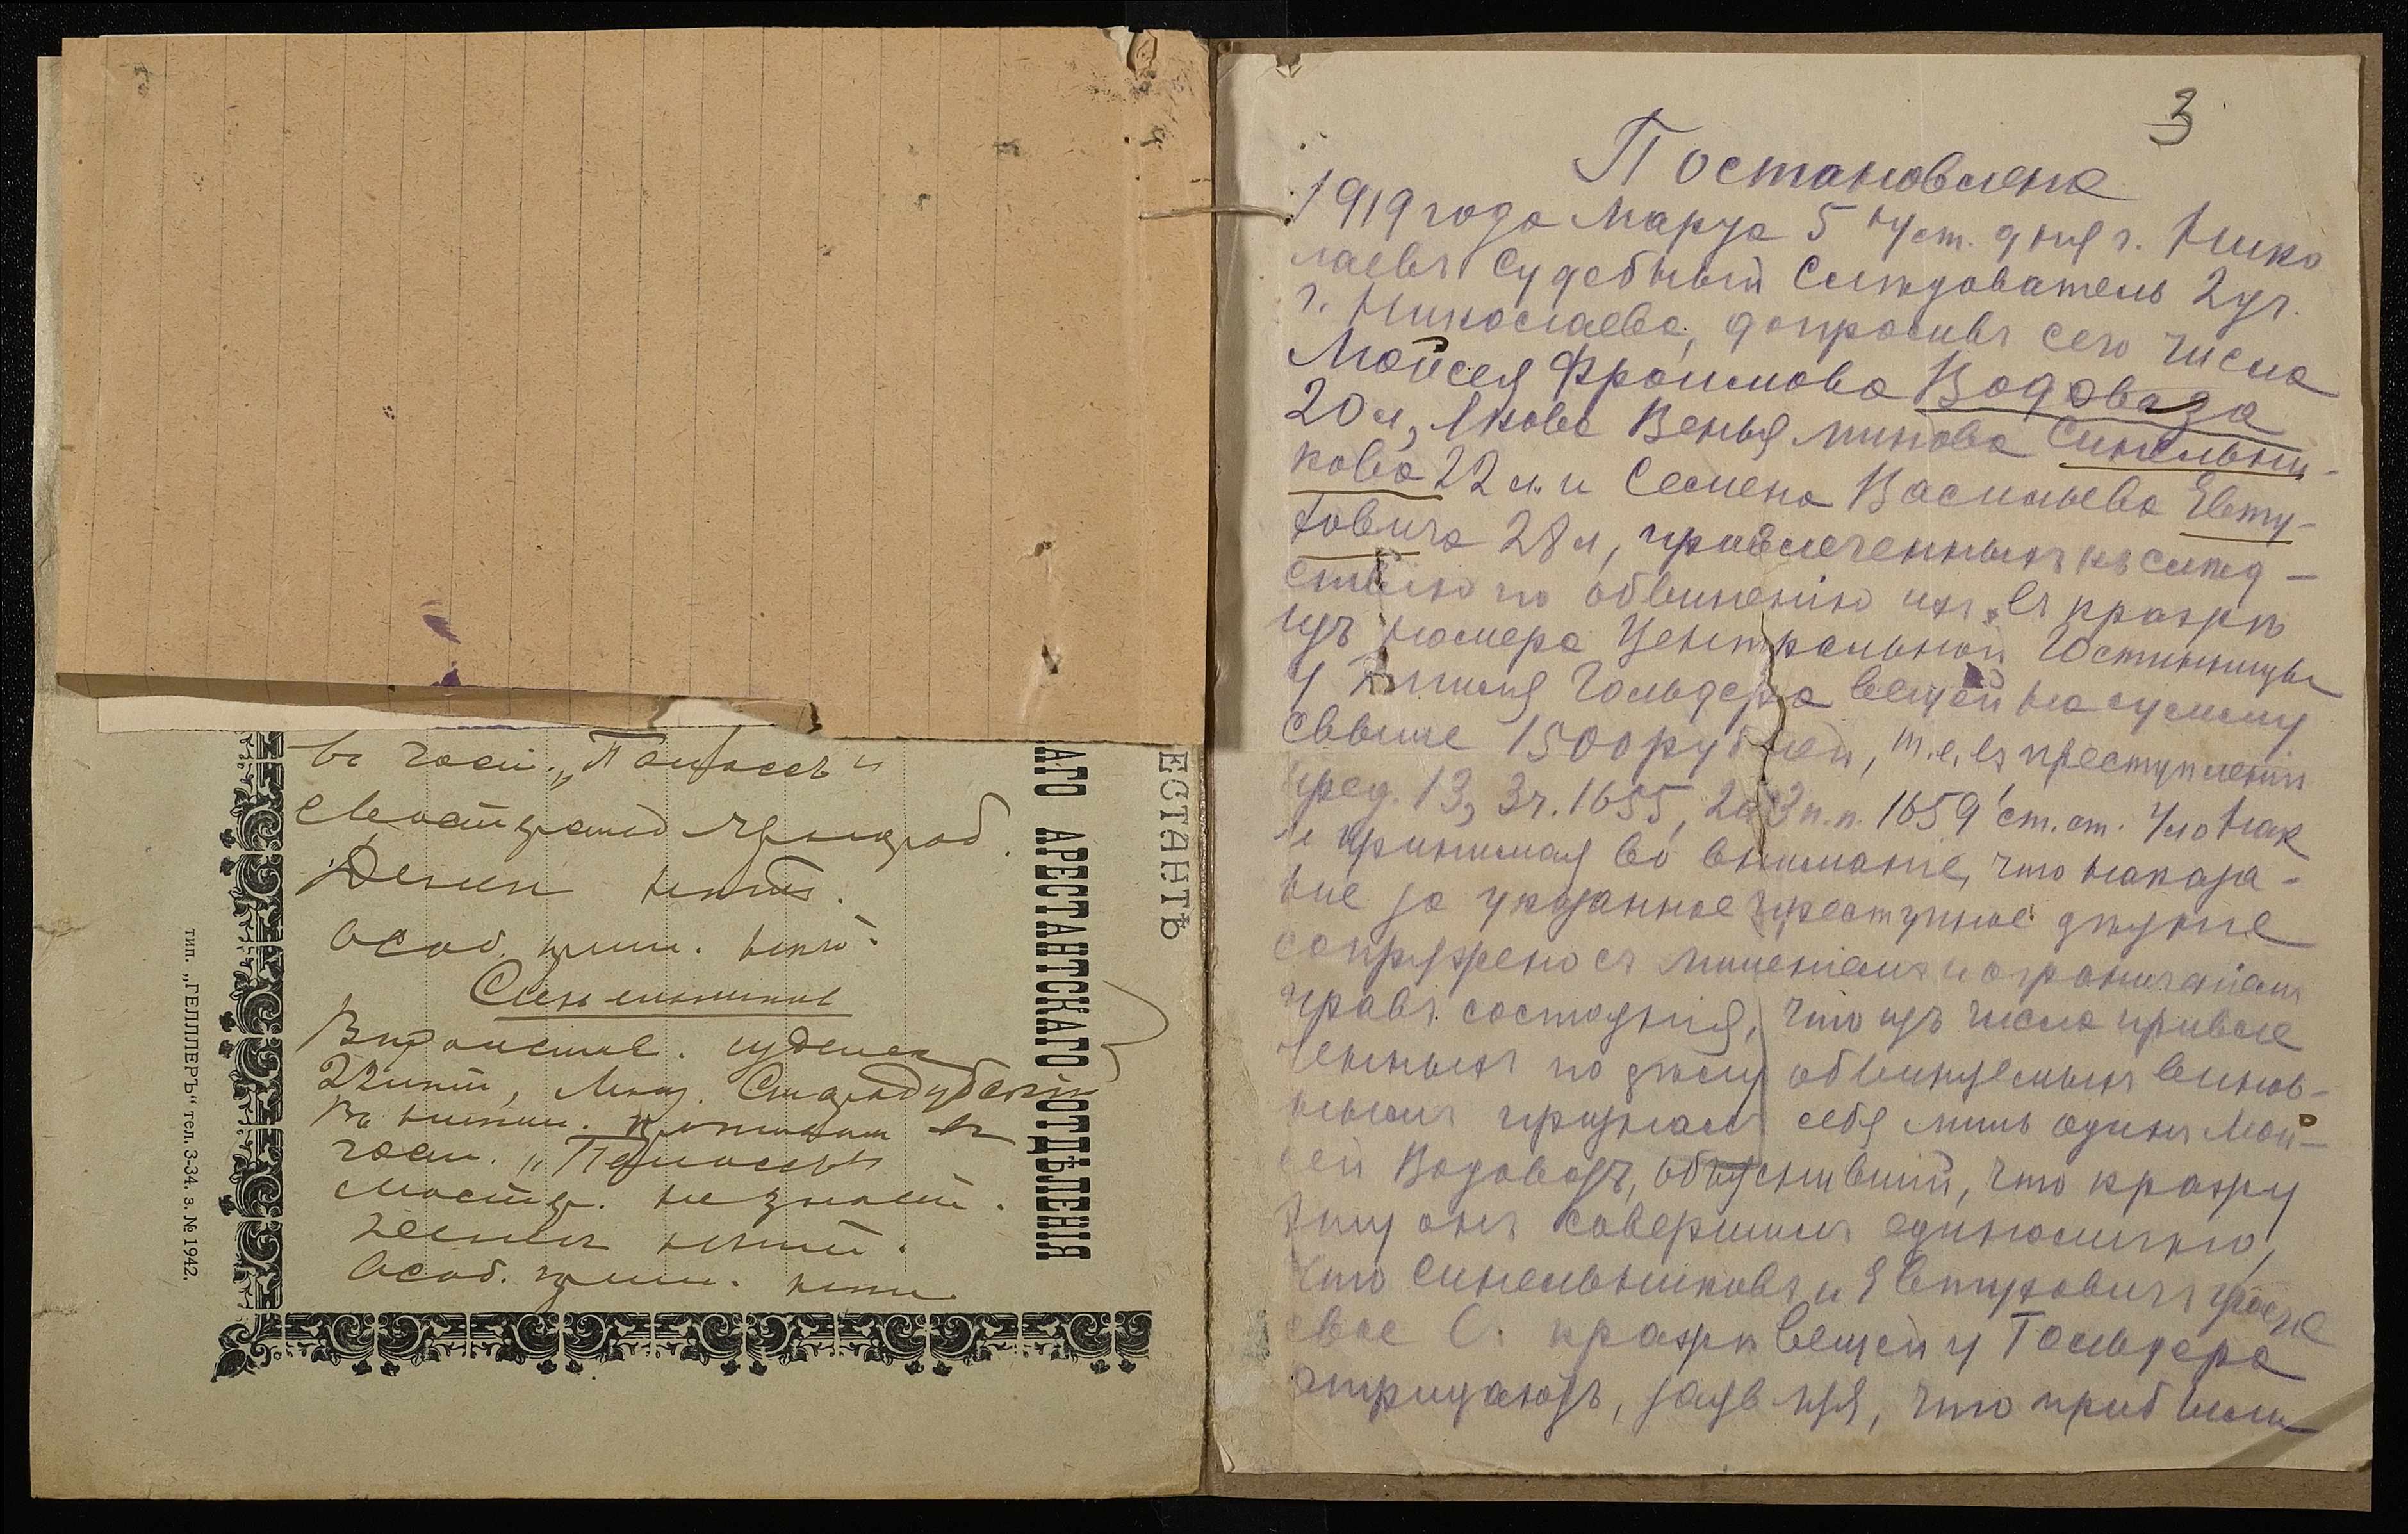 въ гост. „Парнассъ"
Денег нѣтъ.
Особ. прим. нѣтъ.
Синельников
Вѣроиспов. иудейск
22 лѣт, Мещ. Стародубский
гост. „Парнассъ
не знает.
Денег нѣтъ.
Особ. прим. нѣтъ.
АГО АРЕСТАНТСКАГО ОТДѢЛЕНІЯ
ЕСТАНТЪ
тип. „ГЕЛЛЛЕРЪ" тел. 3-34. з. № 1942.
3
Постановлене
1919 года Марта 5 н/ст. дня г. Нико
лаевъ Судебный Слѣдователь 2 уч.
г. Николаева, допросивъ сего числа
Мойсея Фроимова Водоваза
20 л, Якова Веньяминова Синельни-
кова 22 л. и Семена Васильева Евту-
ховича 28 л, привлеченныхъ къ слѣд-
ствію по обвиненію ихъ въ кражѣ
изъ номера Центральной Гостинницы
у Гольдера вещей на сумму
свыше 1500 рублей, т.е. въ преступленіи
пред. 13, 3 ч. 1655, 2 и 3 п.п. 1659 ст. ст. Улож Нак
и принимая во вниманіе, что наказа-
ние за указанное преступное дѣяніе
сопряжено съ лишеніемъ и ограниченіемъ
правъ состоянія, что изъ числа привле
ченныхъ по дѣлу обвиняемыхъ винов-
нымъ призналъ себя лишь одинъ Мой-
сей Водовозъ, объяснившій, что кражу
эту онъ совершилъ единолично,
что Синельниковъ и Евтуховичъ участіе
свое въ кражѣ вещей у Гольдера
отрицаютъ, заявляя, что прибыли